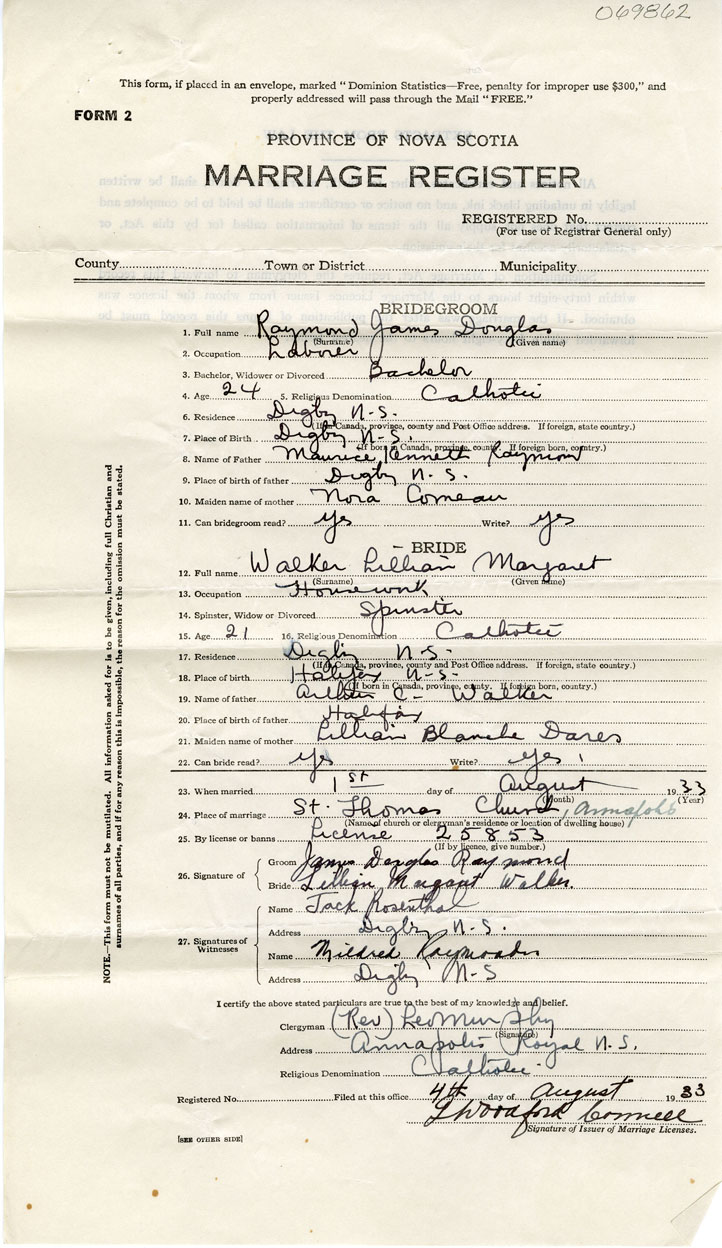 069862
This form, if placed in an envelope, marked "Dominion Statistics—Free, penalty for improper use $300," and
properly addressed will pass through the Mail "FREE."
FORM 2
PROVINCE OF NOVA SCOTIA
MARRIAGE REGISTER
REGISTERED No.
(For use of Registrar General only)
County Town or District Municipality
BRIDEGROOM
1. Full name Raymond James Douglas
(Surname) (Given name)
2. Occupation Laborer
3. Bachelor, Widower or Divorced Bachelor
4. Age 24 5. Religious Denomination Catholic
6. Residence Digby N.S.
(If Canada, province, county and Post Office address. If foreign, state country.)
7. Place of Birth Digby N.S.
(If born in Canada, province, county. If foreign born, country.)
8. Name of Father Maurice Kenneth Raymond
9. Place of birth of father Digby N.S.
10. Maiden name of mother Nora Comeau
11. Can bridegroom read? yes Write? yes
BRIDE
12. Full name Walker Lillian Margaret
(Surname) (Given name)
13. Occupation Housework
14. Spinster, Widow or Divorced Spinster
15. Age 21 16. Religious Denomination Catholic
17. Residence Digby N.S.
(If Canada, province, county and Post Office address. If foreign, state country.)
18. Place of birth Halifax N.S.
(If born in Canada, province, county. If foreign born, country.)
19. Name of father Arthur C. Walker
20. Place of birth of father Halifax
21. Maiden name of mother Lillian Blanche Dares
22. Can bride read? yes Write? yes
23. When married 1st day of August 1933
(Month) (Year)
24. Place of marriage St. Thomas Church, Annapolis
(Name of church or clergyman's residence or location of dwelling house)
25. By license or banns License 25853
(If by licence, give number.)
26. Signature of
Groom James Douglas Raymond
Bride Lillian Margaret Walker.
27. Signatures of Witnesses
Name Jack Rosenthal
Address Digby N.S.
Name Mildred Raymond
Address Digby N-S
I certify the above stated particulars are true to the best of my knowledge and belief.
Clergyman (Rev) Leo Murphy
(Signature)
Address Annapolis Royal N.S.
Religious Denomination Catholic
Registered No. Filed at this office 4th day of August 1933
Woodford Connell
Signature of Issuer of Marriage Licenses.
[SEE OTHER SIDE]
NOTE.—This form must not be mutilated. All information asked for is to be given, including full Christian and
surnames of all parties, and if for any reason this is impossible, the reason for the omission must be stated.